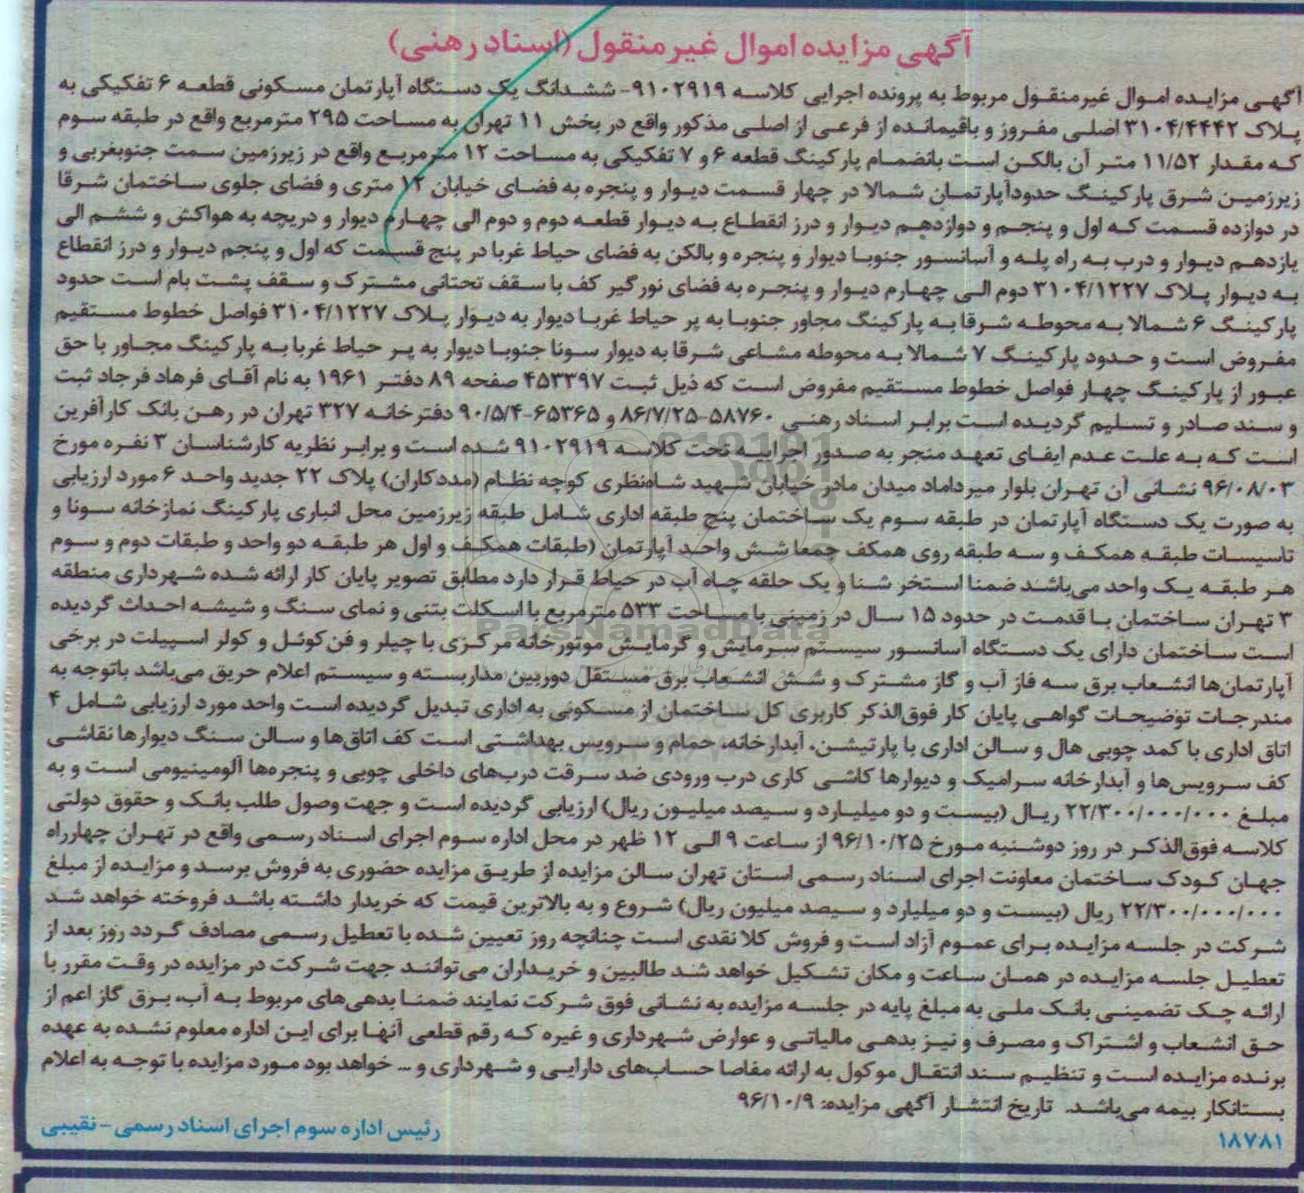 آگهی مزایده اموال غیر منقول (اسناد رهنی)
آگهی مزایده اموال غیرمنقول مربوط به پرونده اجرایی کلاسه ۹۱۰۲۹۱۹- ششدانگ یک دستگاه آپارتمان مسکونی قطعه ۶ تفکیکی به
پلاک ۳۱۰۴/۴۴۴۲ اصلی مفروز و باقیمانده از فرعی از اصلی مذکور واقع در بخش ۱۱ تهران به مساحت ۲۹۵ مترمربع واقع در طبقه سوم
که مقدار ۱۱/۵۲ متر آن بالکن است بانضمام پارکینگ قطعه ۶ و ۷ تفکیکی به مساحت ۱۲ مترمربع واقع در زیرزمین سمت جنوبغربی و
زیرزمین شرق پارکینگ حدودآپارتمان شمالا در چهار قسمت دیوار و پنجره به فضای خیابان ۱۲ متری و فضای جلوی ساختمان شرقا
در دوازده قسمت که اول و پنجم و دوازدهم دیوار و درز انقطاع به دیوار قطعه دوم و دوم الی چهارم دیوار و دریچه به هواکش و ششم الی
یازدهم دیوار و درب به راه پله و آسانسور جنوبا دیوار و پنجره و بالکن به فضای حیاط غربا در پنج قسمت که اول و پنجم دیوار و درز انقطاع
به دیوار پلاک ۳۱۰۴/۱۲۲۷ دوم الی چهارم دیوار و پنجره به فضای نورگیر کف با سقف تحتانی مشترک و سقف پشت بام است حدود
پارکینگ ۶ شمالا به محوطه شرقا به پارکینگ مجاور جنوبا به پر حیاط غربا دیوار به دیوار پلاک ۳۱۰۴/۱۲۲۷ فواصل خطوط مستقیم
مفروض است و حدود پارکینگ ۷ شمالا به محوطه مشاعی شرقا به دیوار سونا جنوبا دیوار به پر حیاط غربا به پارکینگ مجاور با حق
عبور از پارکینگ چهار فواصل خطوط مستقیم مفروض است که ذیل ثبت ۴۵۳۳۹۷ صفحه ۸۹ دفتر ۱۹۶۱ به نام آقای فرهاد فرجاد ثبت
و سند صادر و تسلیم گردیده است برابر اسناد رهنی ۵۸۷۶۰-۸۶/۷/۲۵ و ۶۵۳۶۵-۹۰/۵/۴ دفترخانه ۳۲۷ تهران در رهن بانک کارآفرین
است که به علت عدم ایفای تعهد منجر به صدور اجراییه تحت کلاسه ۹۱۰۲۹۱۹ شده است و برابر نظریه کارشناسان ۳ نفره مورخ
۹۶/۰۸/۰۳ نشانی آن تهران بلوار میرداماد میدان مادر خیابان شهید شاه‌نظری کوچه نظام (مددکاران) پلاک ۲۲ جدید واحد ۶ مورد ارزیابی
به صورت یک دستگاه آپارتمان در طبقه سوم یک ساختمان پنج طبقه اداری شامل طبقه زیرزمین محل انباری پارکینگ نمازخانه سونا و
تاسیسات طبقه همکف و سه طبقه روی همکف جمعا شش واحد آپارتمان (طبقات همکف و اول هر طبقه دو واحد و طبقات دوم و سوم
هر طبقه یک واحد می‌باشد ضمنا استخر شنا و یک حلقه چاه آب در حیاط قرار دارد مطابق تصویر پایان کار ارائه شده شهرداری منطقه
۳ تهران ساختمان با قدمت در حدود ۱۵ سال در زمینی با مساحت ۵۳۳ مترمربع با اسکلت بتنی و نمای سنگ و شیشه احداث گردیده
است ساختمان دارای یک دستگاه آسانسور سیستم سرمایش و گرمایش موتورخانه مرکزی با چیلر و فن‌کوئل و کولر اسپیلت در برخی
آپارتمان‌ها انشعاب برق سه فاز آب و گاز مشترک و شش انشعاب برق مستقل دوربین مداربسته و سیستم اعلام حریق می‌باشد باتوجه به
مندرجات توضیحات گواهی پایان کار فوق‌الذکر کاربری کل ساختمان از مسکونی به اداری تبدیل گردیده است واحد مورد ارزیابی شامل ۴
اتاق اداری با کمد چوبی هال و سالن اداری با پارتیشن، آبدارخانه، حمام و سرویس بهداشتی است کف اتاق‌ها و سالن سنگ دیوارها نقاشی
کف سرویس‌ها و آبدارخانه سرامیک و دیوارها کاشی کاری درب ورودی ضد سرقت درب‌های داخلی چوبی و پنجره‌ها آلومینیومی است و به
مبلغ ۲۲/۳۰۰/۰۰۰/۰۰۰ ریال (بیست و دو میلیارد و سیصد میلیون ریال) ارزیابی گردیده است و جهت وصول طلب بانک و حقوق دولتی
کلاسه فوق‌الذکر در روز دوشنبه مورخ ۹۶/۱۰/۲۵ از ساعت ۹ الی ۱۲ ظهر در محل اداره سوم اجرای اسناد رسمی واقع در تهران چهارراه
جهان کودک ساختمان معاونت اجرای اسناد رسمی استان تهران سالن مزایده از طریق مزایده حضوری به فروش برسد و مزایده از مبلغ
۲۲/۳۰۰/۰۰۰/۰۰۰ ریال (بیست و دو میلیارد و سیصد میلیون ریال) شروع و به بالاترین قیمت که خریدار داشته باشد فروخته خواهد شد
شرکت در جلسه مزایده برای عموم آزاد است و فروش کلا نقدی است چنانچه روز تعیین شده با تعطیل رسمی مصادف گردد روز بعد از
تعطیل جلسه مزایده در همان ساعت و مکان تشکیل خواهد شد طالبین و خریداران می‌توانند جهت شرکت در مزایده در وقت مقرر با
ارائه چک تضمینی بانک ملی به مبلغ پایه در جلسه مزایده به نشانی فوق شرکت نمایند ضمنا بدهی‌های مربوط به آب، برق گاز اعم از
حق انشعاب و اشتراک و مصرف و نیز بدهی مالیاتی و عوارض شهرداری و غیره که رقم قطعی آنها برای این اداره معلوم نشده به عهده
برنده مزایده است و تنظیم سند انتقال موکول به ارائه مفاصا حساب‌های دارایی و شهرداری و ... خواهد بود مورد مزایده با توجه به اعلام
بستانکار بیمه می‌باشد. تاریخ انتشار آگهی مزایده: ۹۶/۱۰/۹
۱۸۷۸۱ رئیس اداره سوم اجرای اسناد رسمی - نقیبی
ParsNamadData